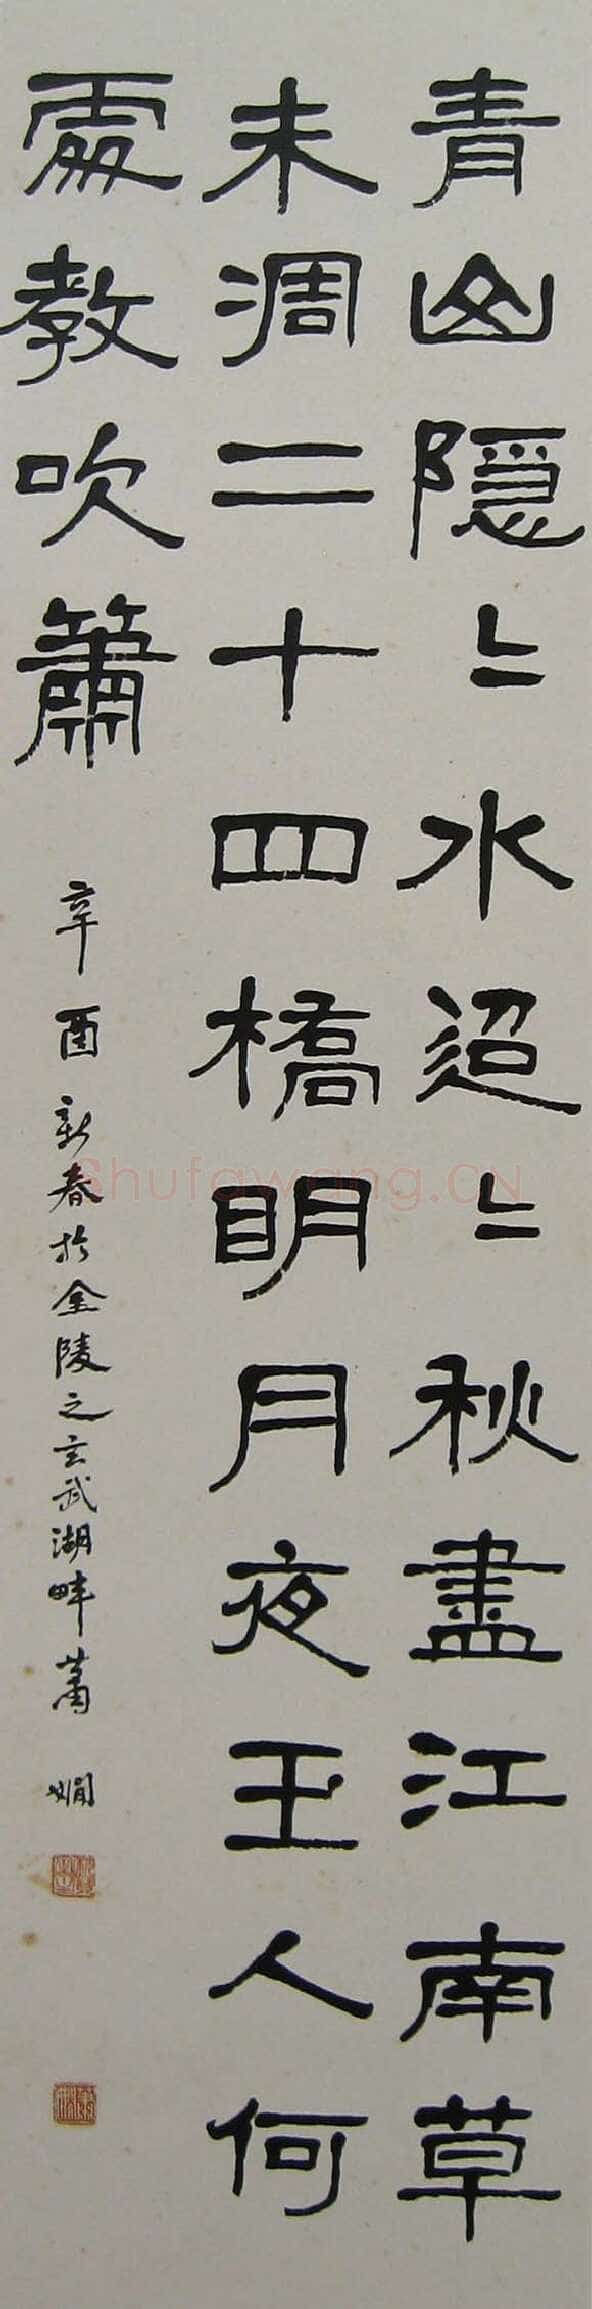 青山隐〻水迢〻秋盡江南草
未凋二十四橋明月夜玉人何
處教吹簫
辛酉新春於金陵之玄武湖畔蕭嫻
Shufawang.CN